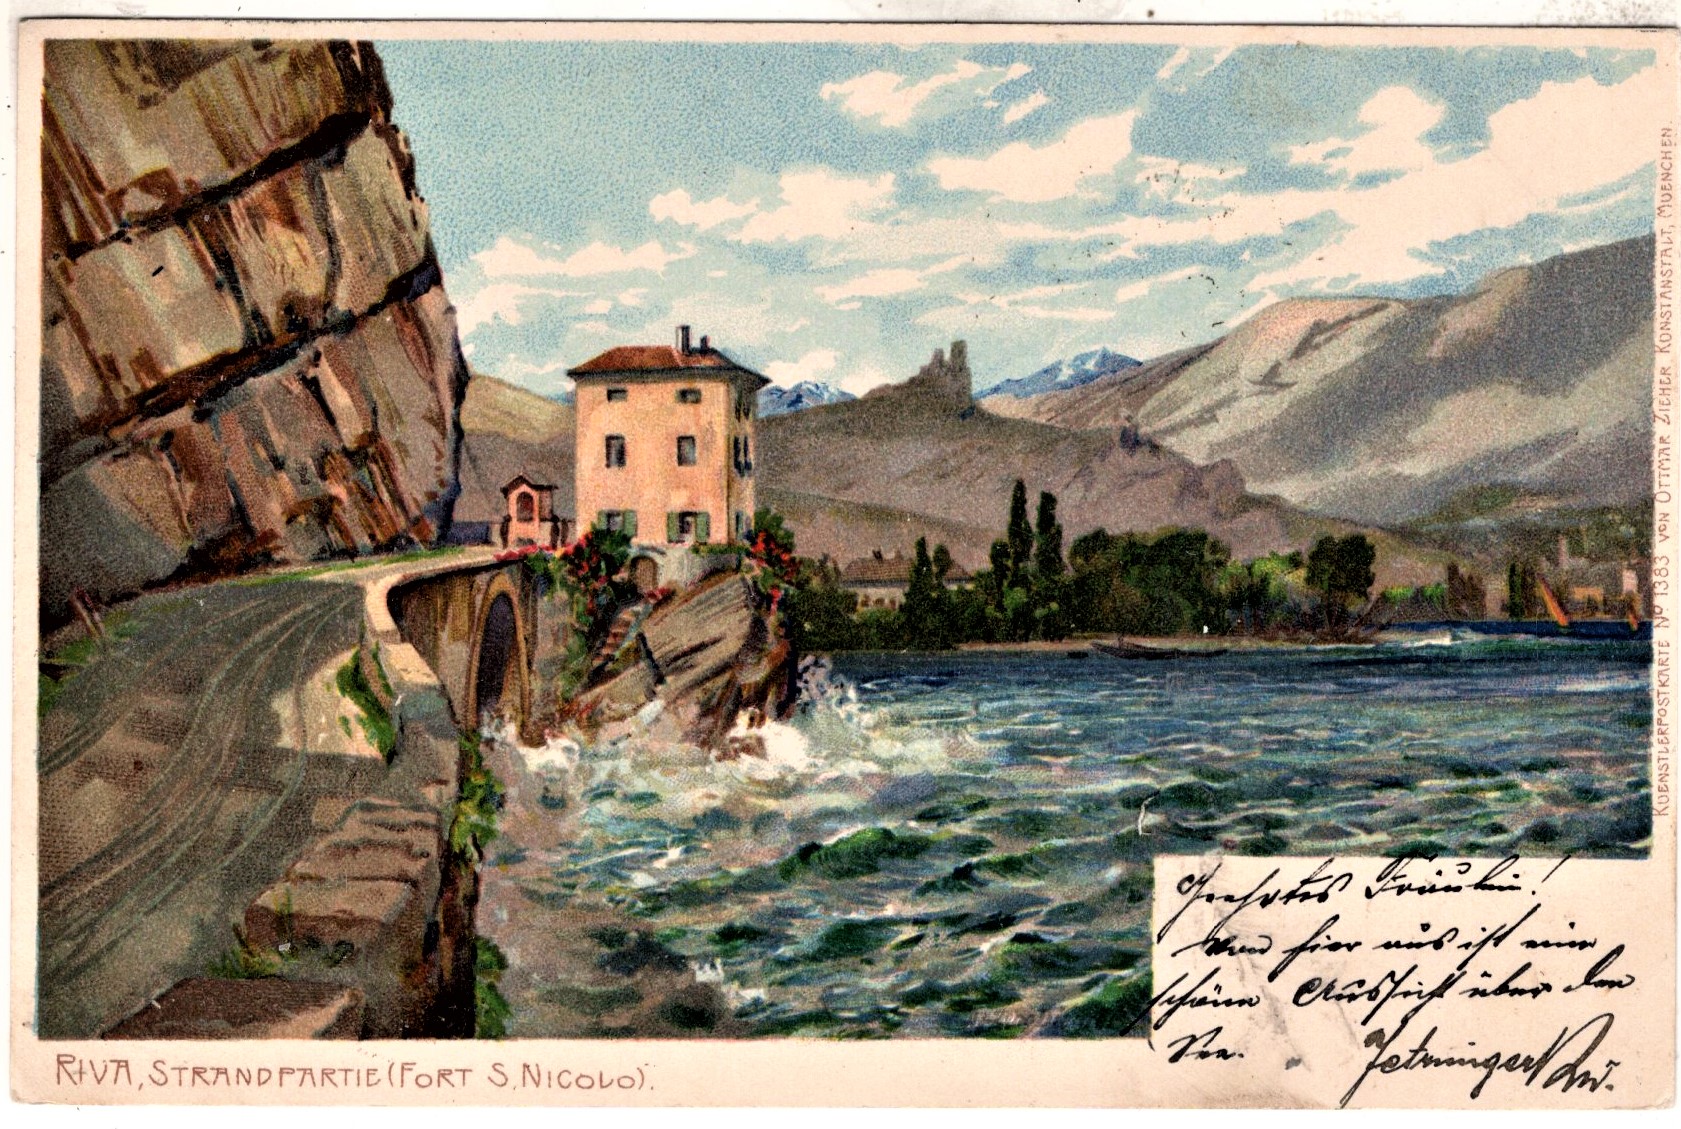 KUENSTLERPOSTKARTE No 1383 VON OTTMAR ZIEHER KONSTANSTALT, MUENCHEN.
Geehrtes Fräulein!
Von hier aus ist eine
schöne Aussicht über den
See.
RIVA, STRANDPARTIE (FORT S. NICOLO).